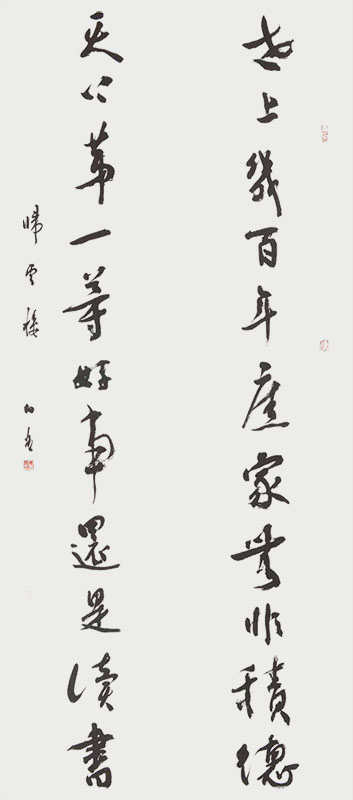 世上幾百年舊家無非積德
天下第一等好事還是讀書
歸雲樓